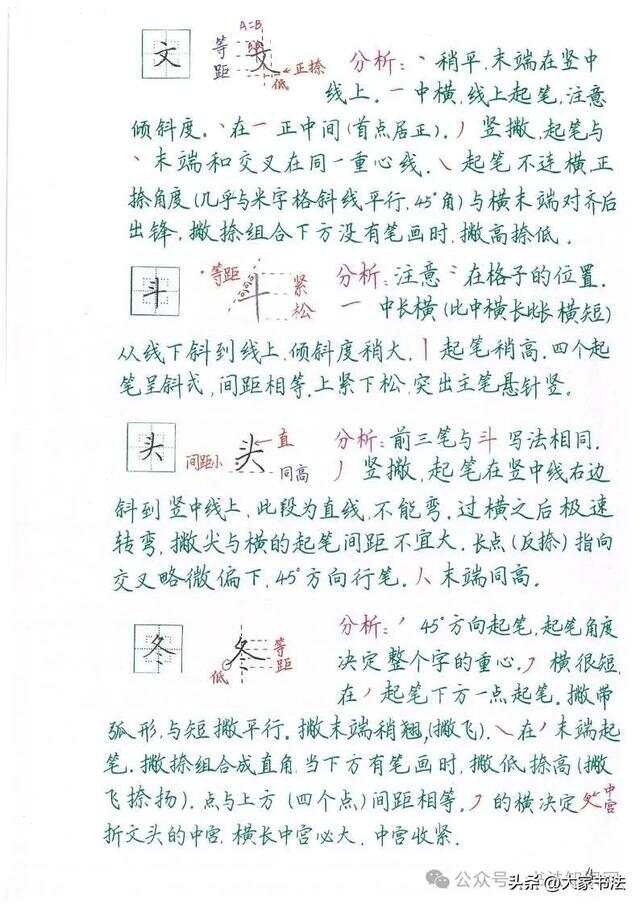 文 等距 A=B 文 正捺 低 分析:丶稍平,末端在竖中
线上。一中横,线上起笔,注意
倾斜度。丶在一正中间(首点居正)。丿竖撇,起笔与
丶末端和交叉在同一重心线。㇏起笔不连横,正
捺角度(几乎与米字格斜线平行,45°角)与横末端对齐后
出锋。撇捺组合下方没有笔画时,撇高捺低。
斗 等距 斗 紧 松 分析:注意⺀在格子的位置。
一中长横(比中横长比长横短)
从线下斜到线上,倾斜度稍大,丨起笔稍高。四个起
笔呈斜式,间距相等。上紧下松,突出主笔悬针竖。
头 间距小 头 直 同高 分析:前三笔与斗写法相同。
丿竖撇,起笔在竖中线右边
斜到竖中线上,此段为直线,不能弯。过横之后极速
转弯,撇尖与横的起笔间距不宜大。长点(反捺)指向
交叉略微偏下,45°方向行笔。八末端同高。
冬 低 冬 等距 分析:丿45°方向起笔,起笔角度
决定整个字的重心。㇇横很短,
在丿起笔下方一点起笔。撇带
弧形,与短撇平行。撇末端稍翘,(撇飞)。㇏在丿末端起
笔。撇捺组合成直角,当下方有笔画时,撇低捺高(撇
飞捺扬)。点与上方(四个点)间距相等。㇇的横决定夂中宫
折文头的中宫,横长中宫必大,中宫收紧。
4
公众号
头条@大家书法